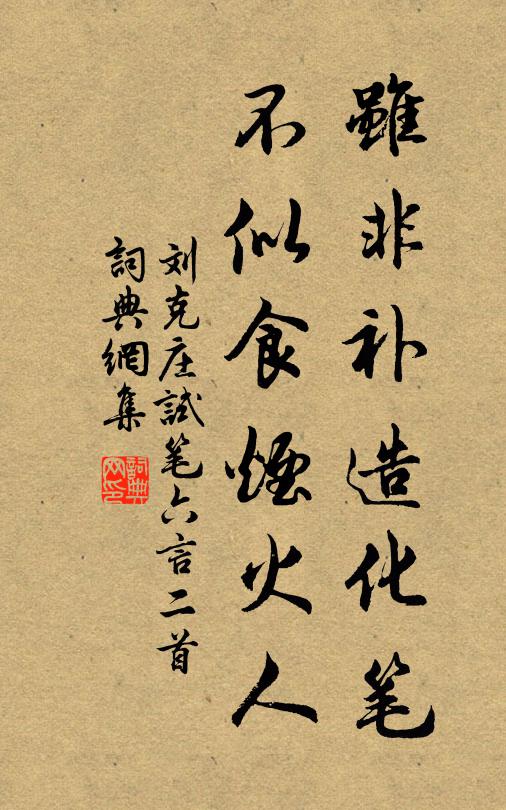 雖非补造化笔
不似食煙火人
刘克庄試笔六言二首
詞典網集
詞典网印